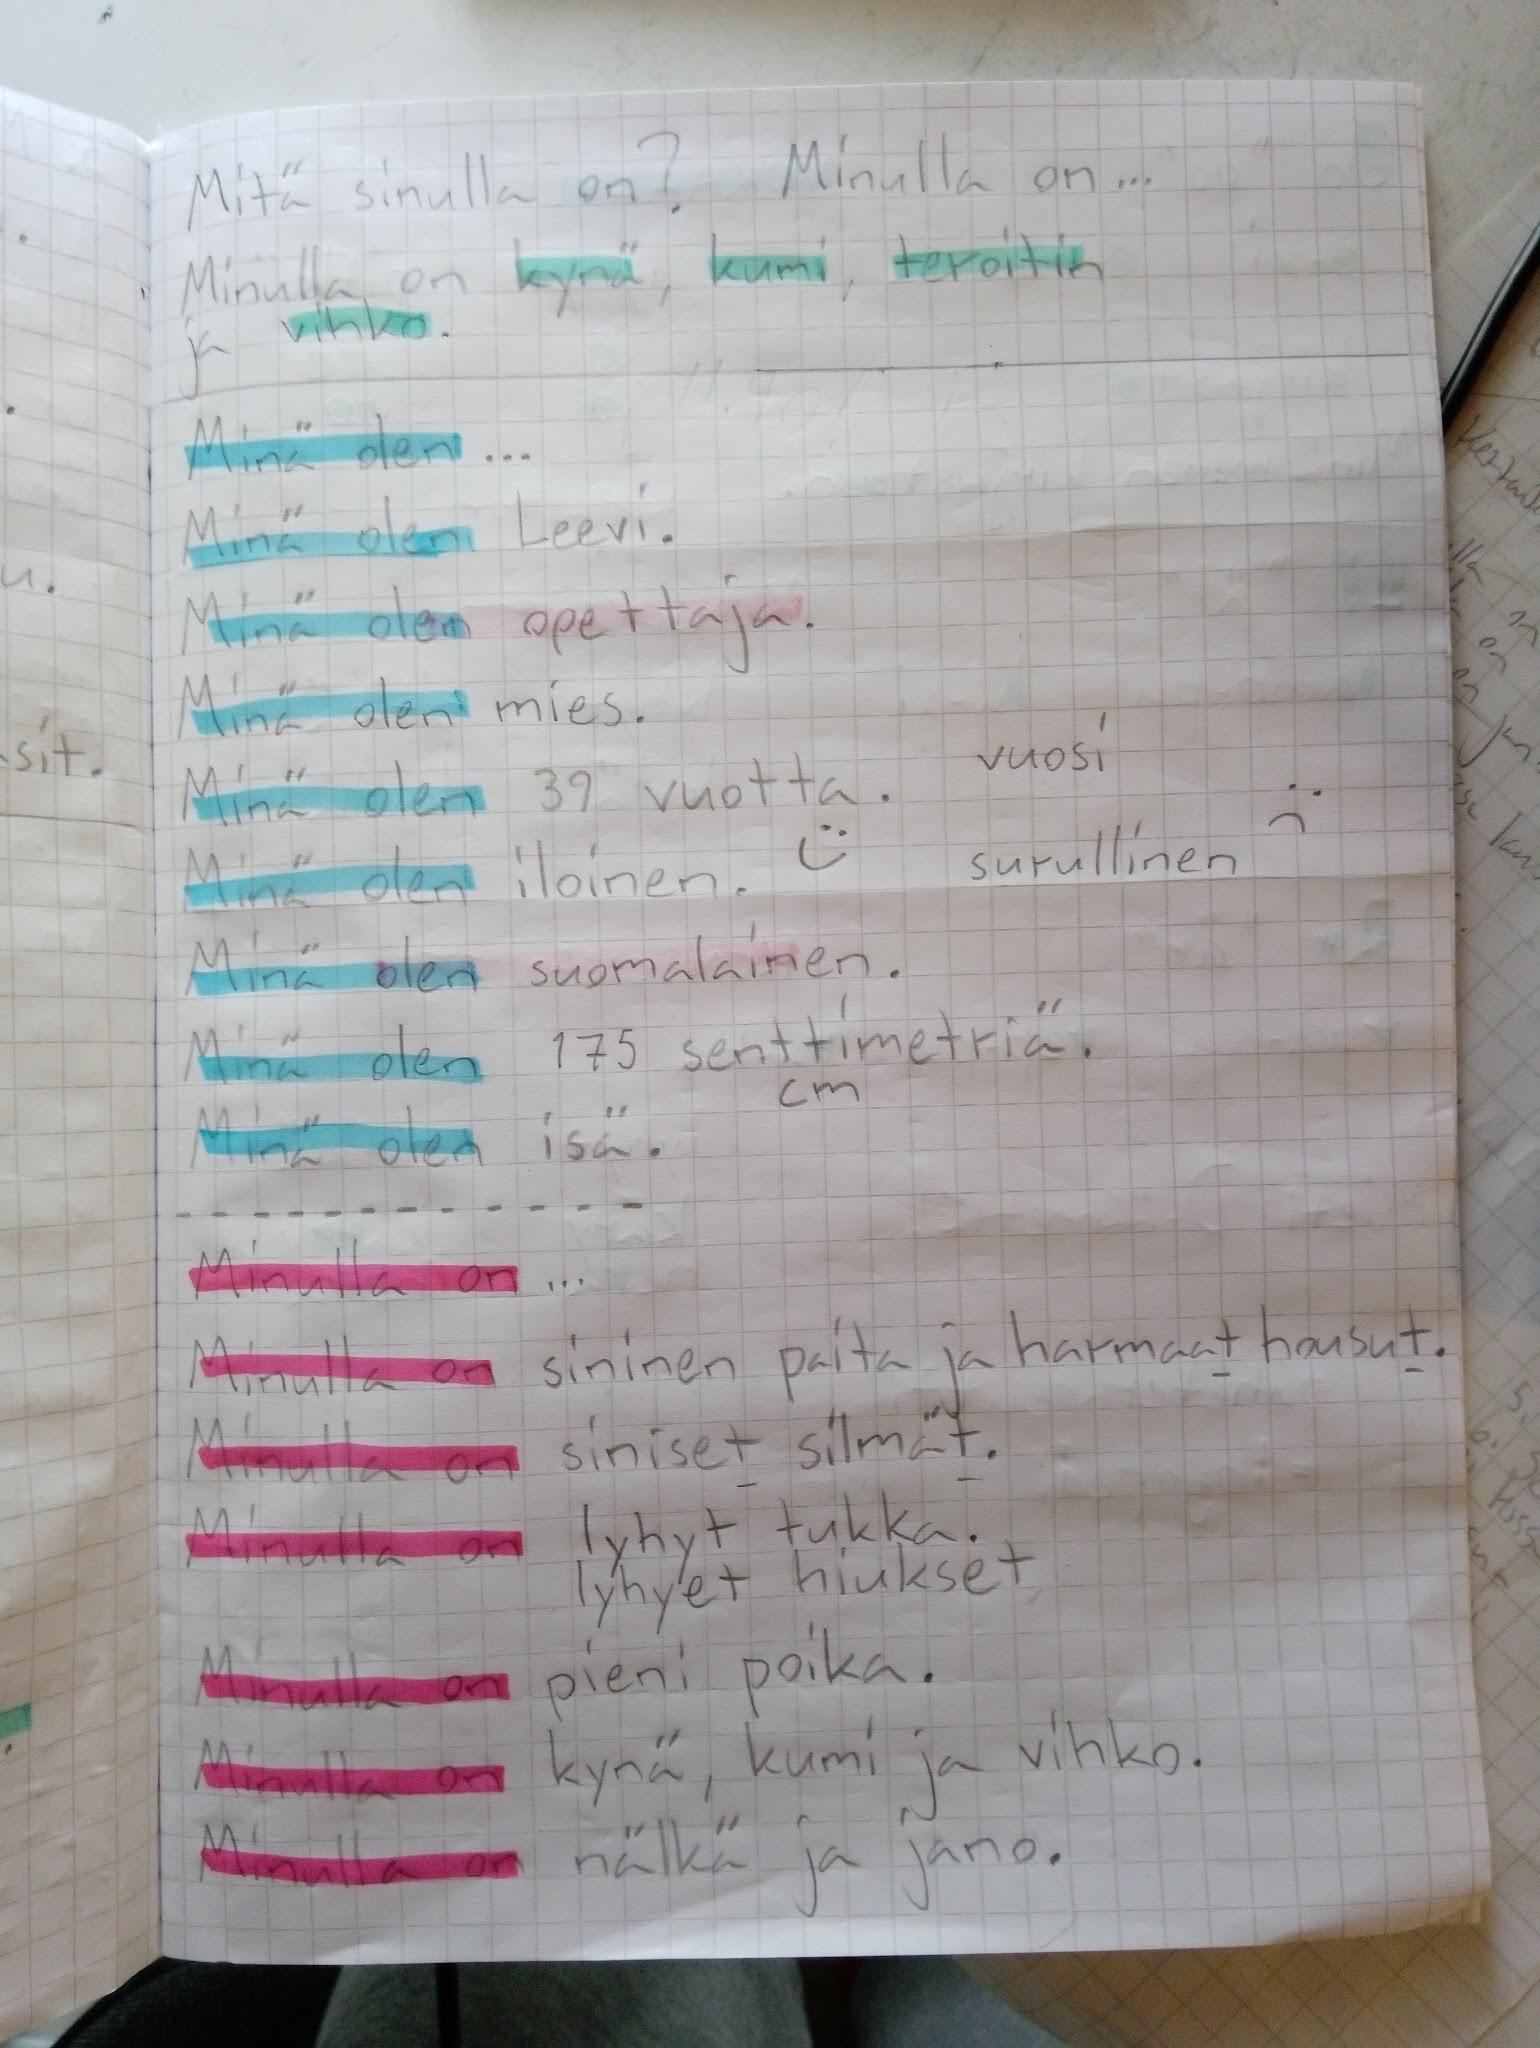 Mitä sinulla on? Minulla on...
Minulla on kynä, kumi, teroitin
ja vihko.
Minä olen ...
Minä olen Leevi.
Minä olen opettaja.
Minä olen mies.
Minä olen 39 vuotta. vuosi
Minä olen iloinen. surullinen
Minä olen suomalainen.
Minä olen 175 senttimetriä.
cm
Minä olen isä.
Minulla on ...
Minulla on sininen paita ja harmaat housut.
Minulla on siniset silmät.
Minulla on lyhyt tukka.
lyhyet hiukset
Minulla on pieni poika.
Minulla on kynä, kumi ja vihko.
Minulla on nälkä ja jano.